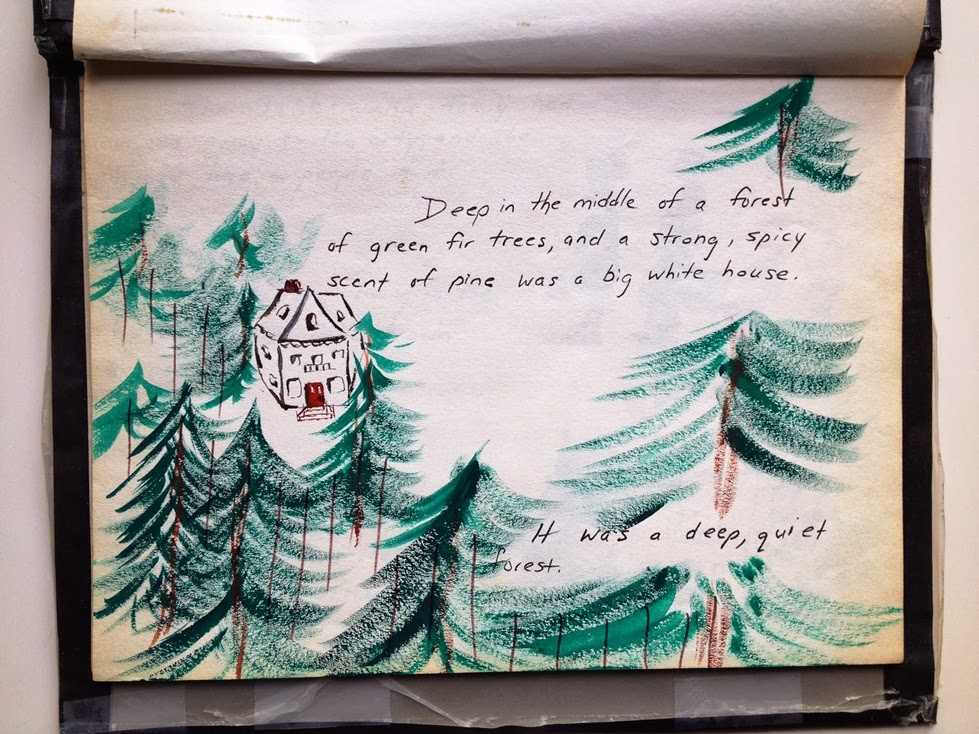 Deep in the middle of a forest
of green fir trees, and a strong, spicy
scent of pine was a big white house.
It was a deep, quiet
forest.